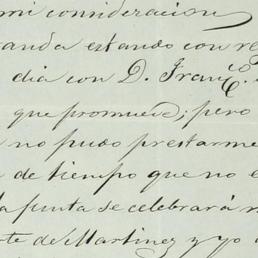 mi consideracion
anda estando con re
dia con D. Franco.
que promueve; pero
no pudo prestarme
de tiempo que no e
la junta se celebrará
te de Martinez y yo